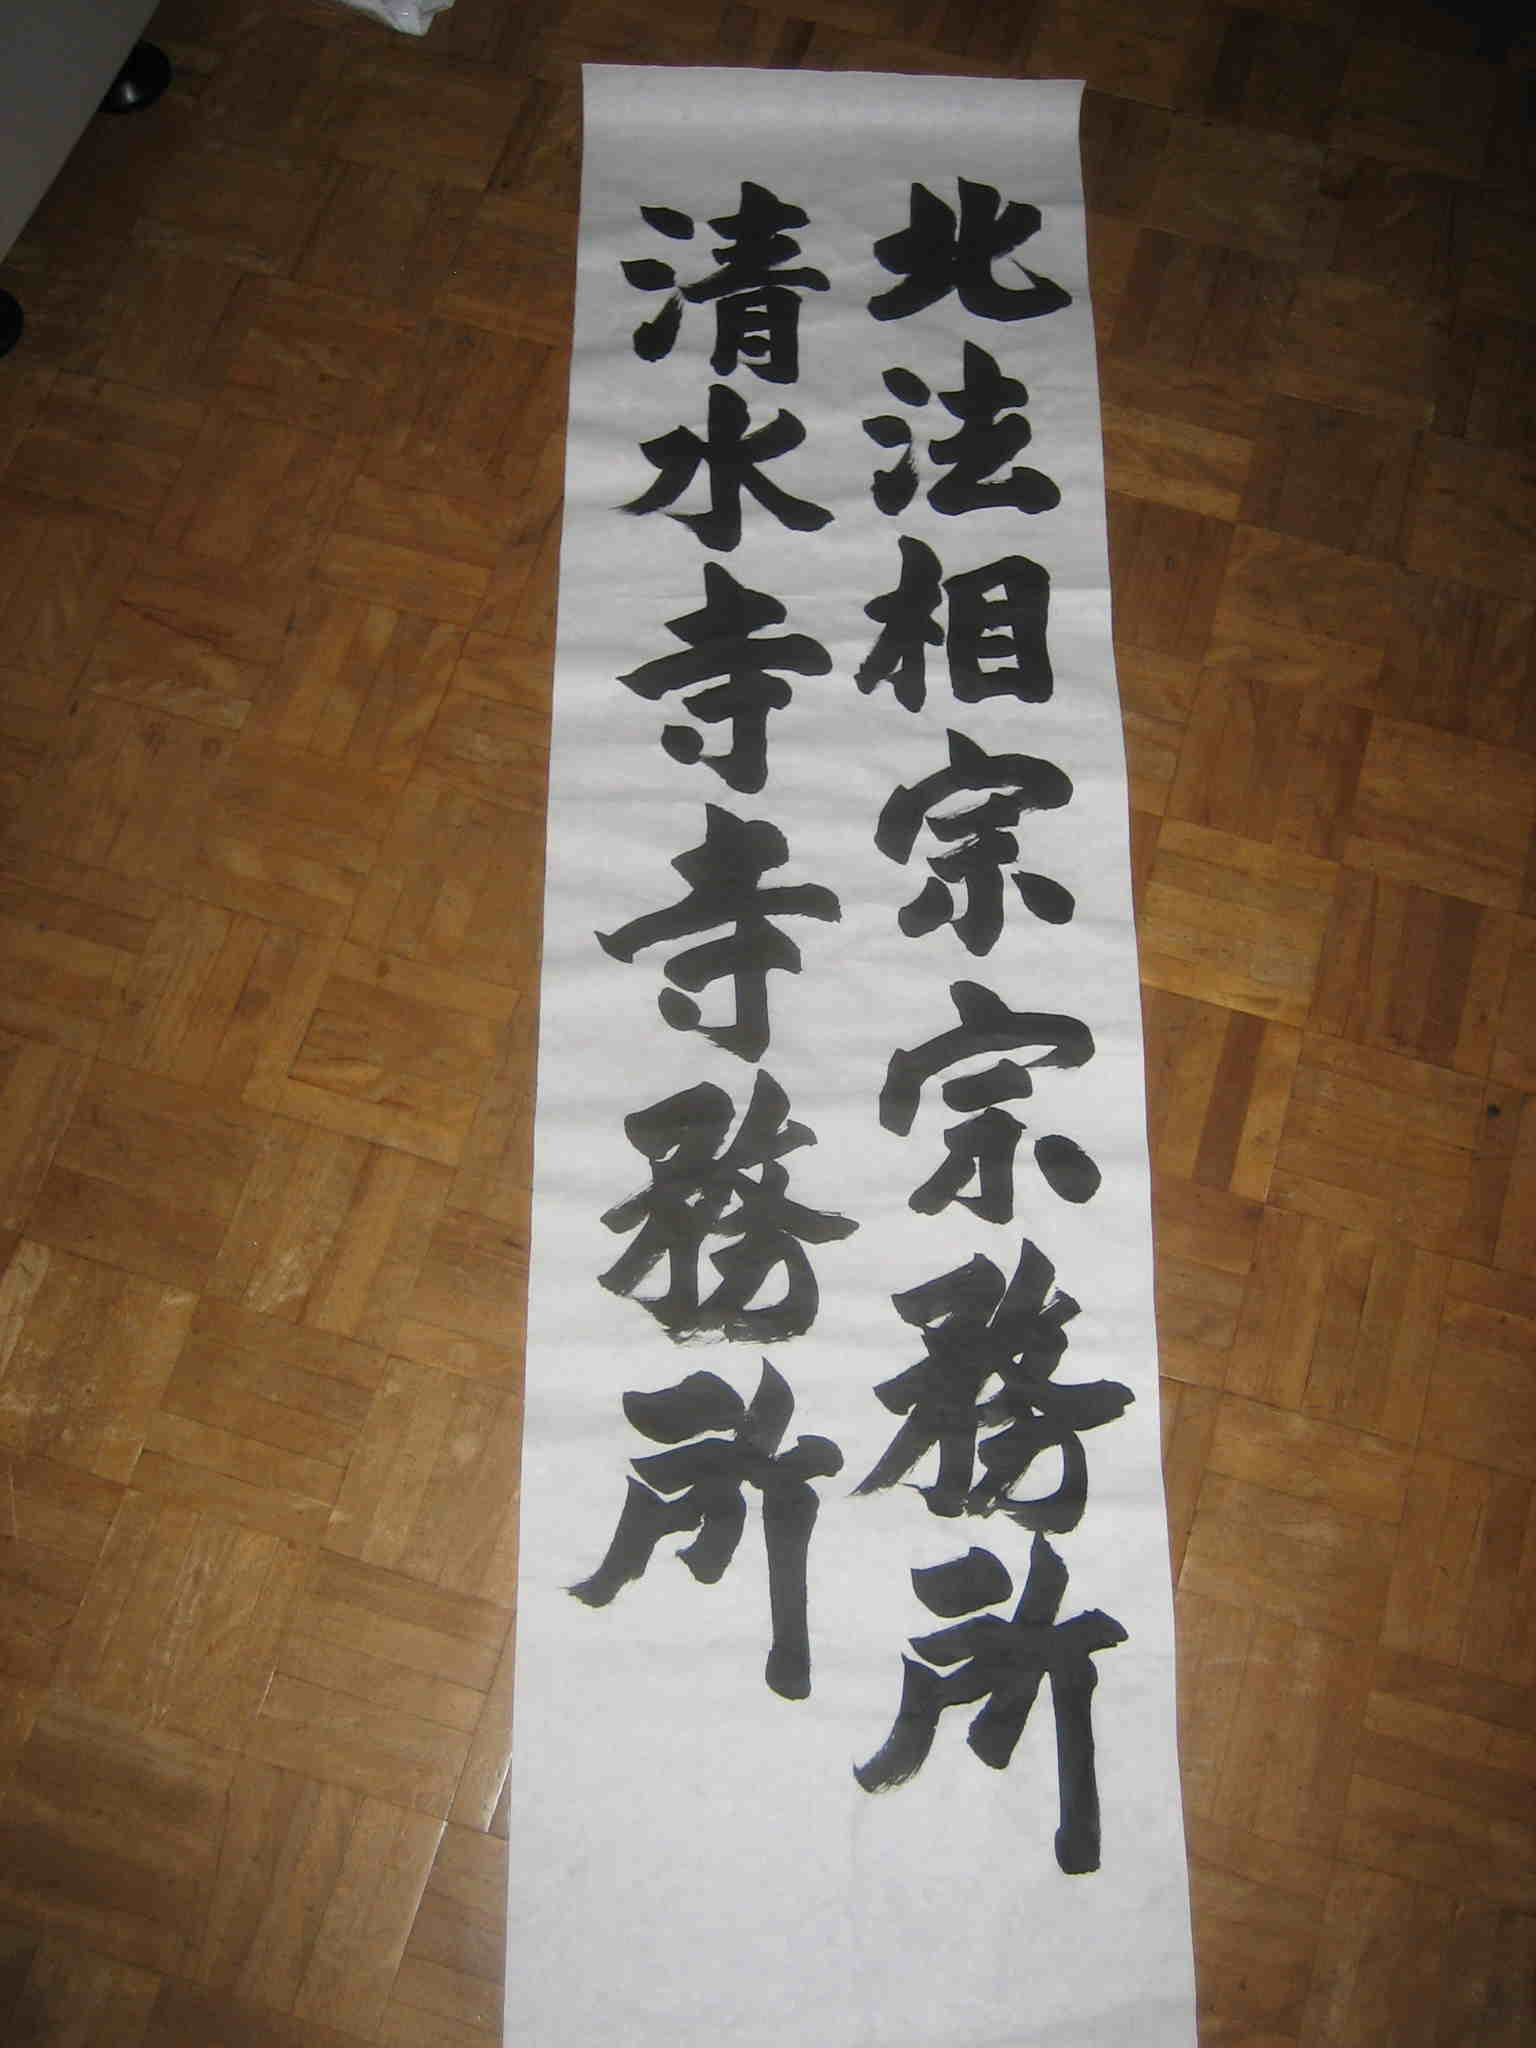 北法相宗宗務所
清水寺寺務所